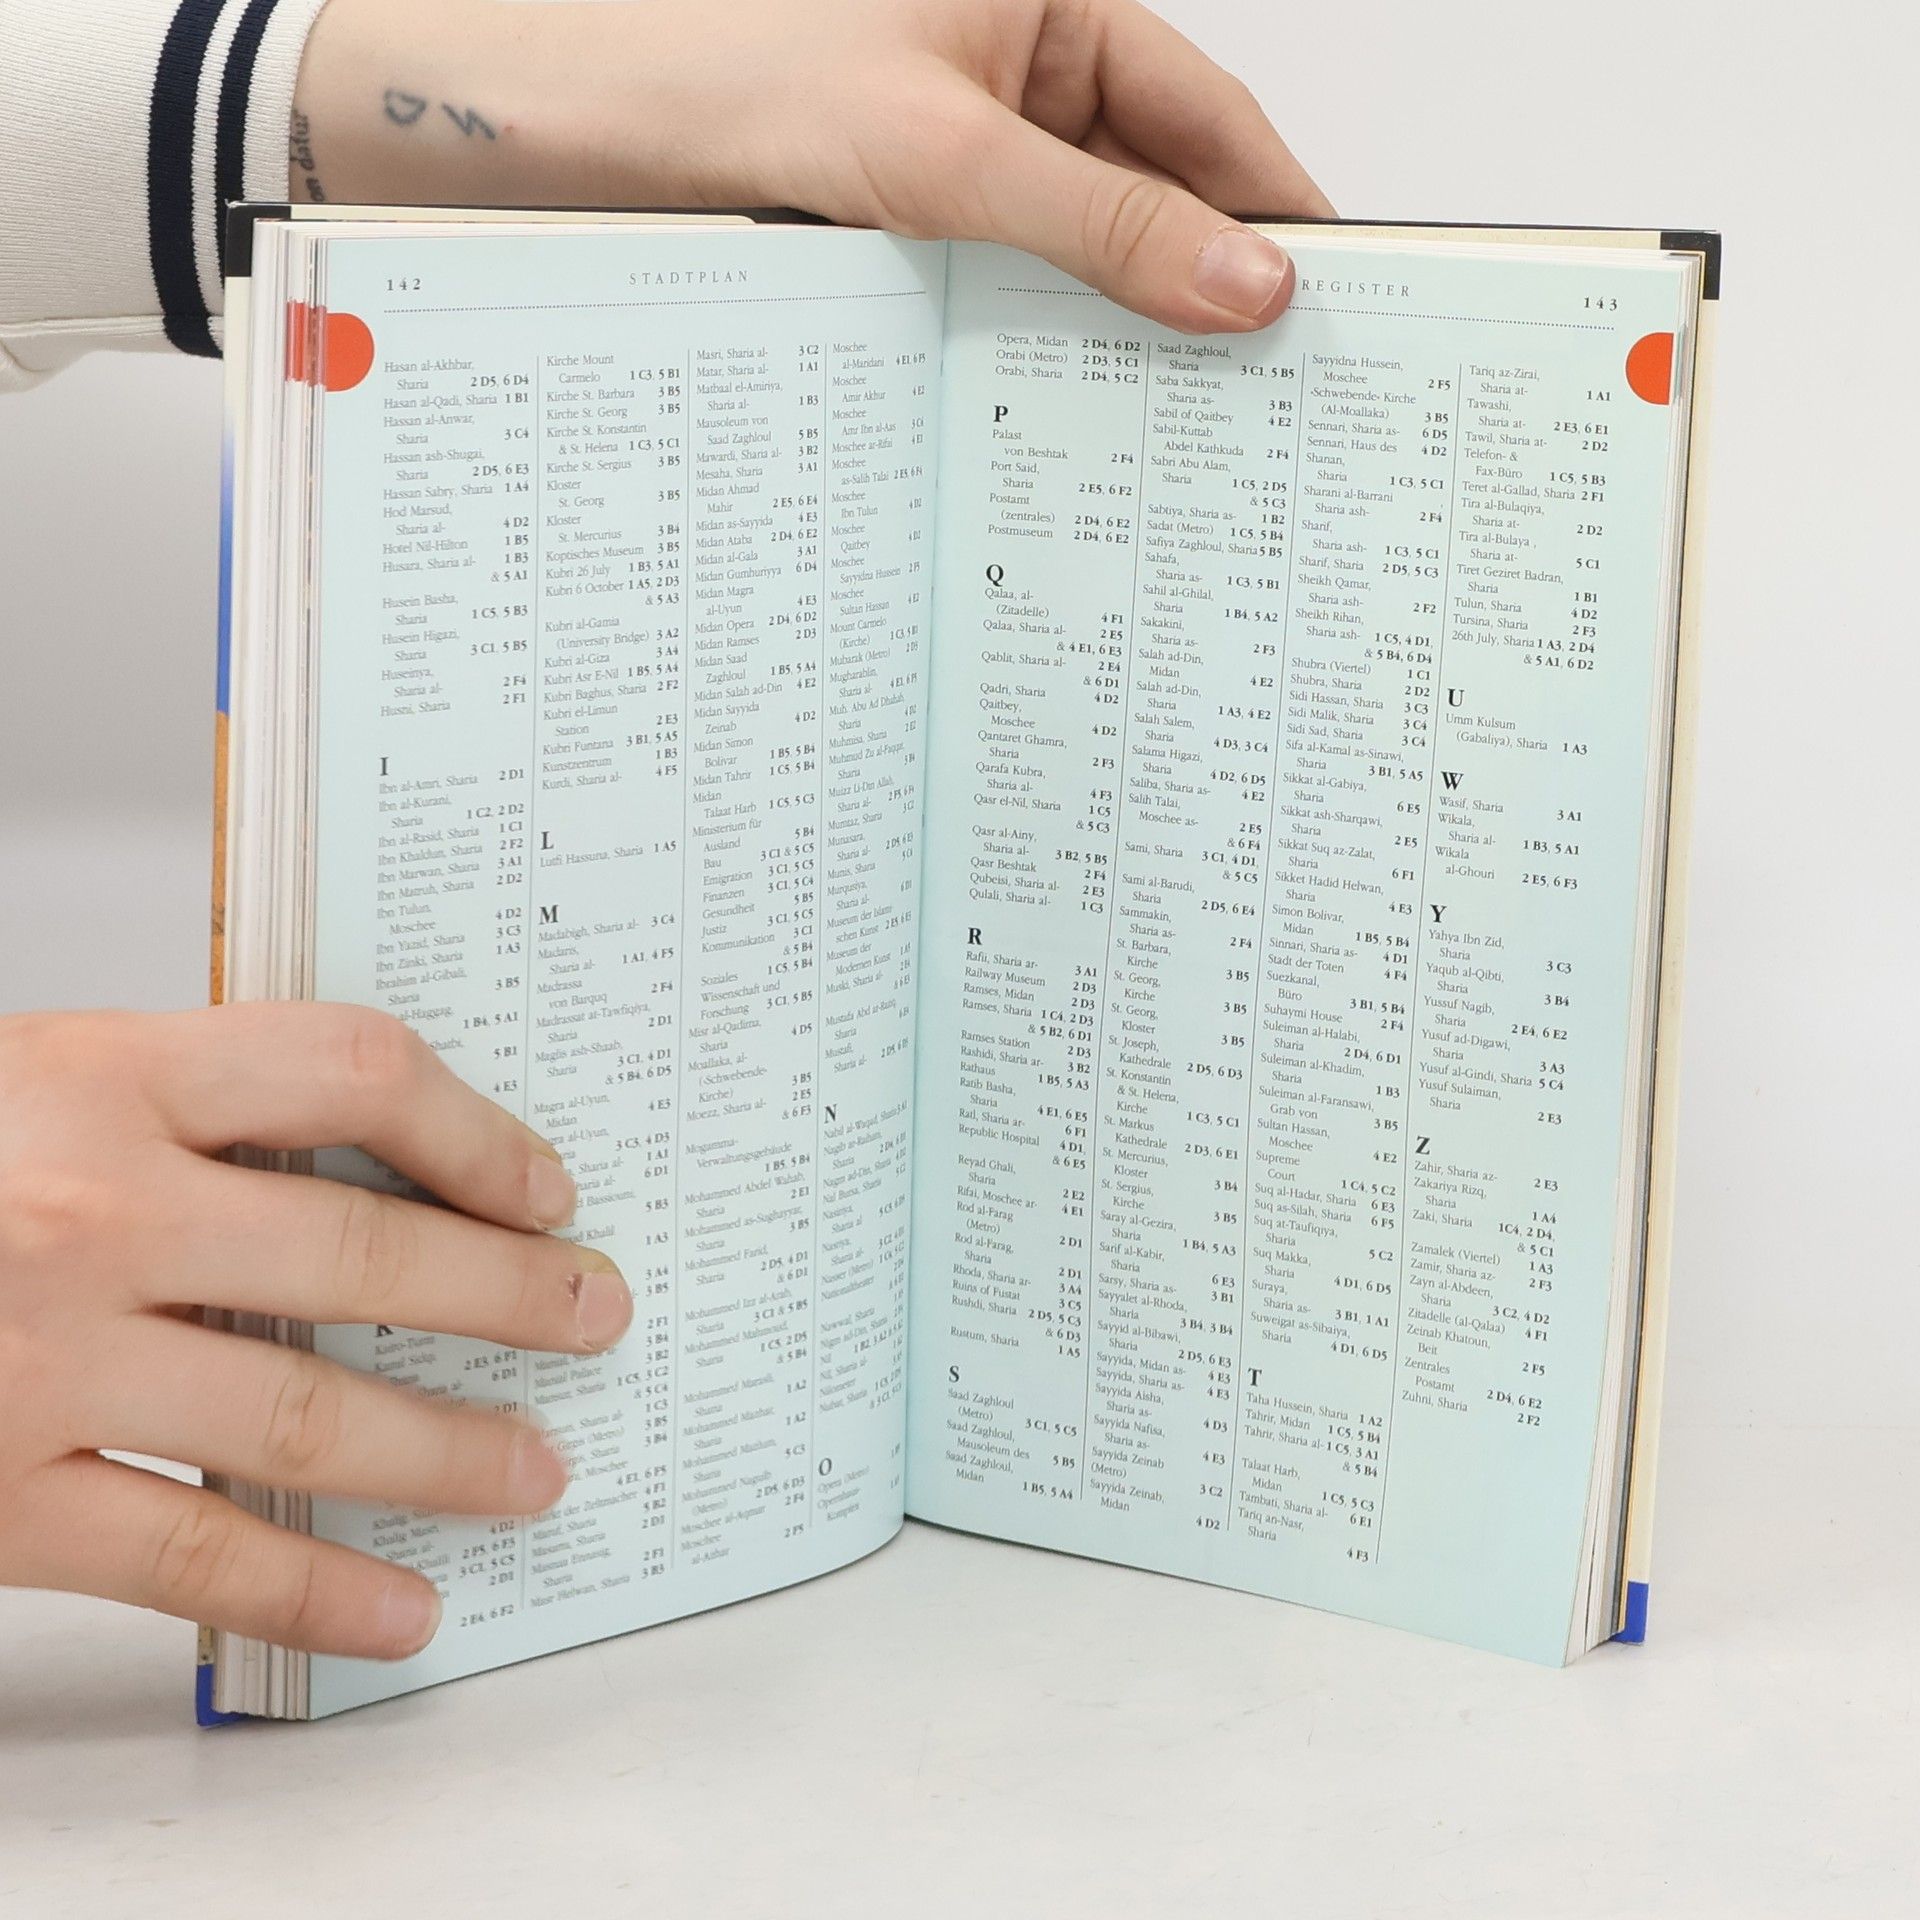 on dafür
142
STADTPLAN
Hasan al-Akhbar,
Sharia 2 D5, 6 D4
Hasan al-Qadi, Sharia 1 B1
Hassan al-Anwar,
Sharia 3 C4
Hassan ash-Shugai,
Sharia 2 D5, 6 E3
Hassan Sabry, Sharia 1 A4
Hod Marsud,
Sharia al- 4 D2
Hotel Nil-Hilton 1 B5
Husara, Sharia al- 1 B3
& 5 A1
Husein Basha,
Sharia 1 C5, 5 B3
Husein Higazi,
Sharia 3 C1, 5 B5
Huseinya,
Sharia al- 2 F4
Husni, Sharia 2 F1
I
Ibn al-Amri, Sharia 2 D1
Ibn al-Kurani,
Sharia 1 C2, 2 D2
Ibn al-Rasid, Sharia 1 C1
Ibn Khaldun, Sharia 2 F2
Ibn Marwan, Sharia 3 A1
Ibn Matruh, Sharia 2 D2
Ibn Tulun,
Moschee 4 D2
Ibn Yazid, Sharia 3 C3
Ibn Zinki, Sharia 1 A3
Ibrahim al-Gibali,
Sharia 3 B5
al-Haggag,
1 B4, 5 A1
5 B1
4 E3
K
2 E3, 6 F1
6 D1
2 D1
Khalig Masri
Sharia al- 4 D2
2 F5, 6 F3
3 C1, 5 C5
2 D1
2 E4, 6 F2
Kirche Mount
Carmelo 1 C3, 5 B1
Kirche St. Barbara 3 B5
Kirche St. Georg 3 B5
Kirche St. Konstantin
& St. Helena 1 C3, 5 C1
Kirche St. Sergius 3 B5
Kloster
St. Georg 3 B5
Kloster
St. Mercurius 3 B4
Koptisches Museum 3 B5
Kubri 26 July 1 B3, 5 A1
Kubri 6 October 1 A5, 2 D3
& 5 A3
Kubri al-Gamia
(University Bridge) 3 A2
Kubri al-Giza 3 A4
Kubri Asr E-Nil 1 B5, 5 A4
Kubri Baghus, Sharia 2 F2
Kubri el-Limun
Station 2 E3
Kubri Funtana 3 B1, 5 A5
Kunstzentrum 1 B3
Kurdi, Sharia al- 4 F5
L
Lutfi Hassuna, Sharia 1 A5
M
Madabigh, Sharia al- 3 C4
Madaris,
Sharia al- 1 A1, 4 F5
Madrassa
von Barquq 2 F4
Madrassat at-Tawfiqiya,
Sharia 2 D1
Maglis ash-Shaab,
Sharia 3 C1, 4 D1
& 5 B4, 6 D5
Magra al-Uyun,
Midan 4 E3
al-Uyun,
3 C3, 4 D3
Sharia al- 1 A1
6 D1
5 B3
Khalil
1 A3
3 A4
3 B5
2 F1
3 B4
3 B2
Manial Palace
Mansur, Sharia 1 C5, 3 C2
& 5 C4
1 C3
3 B5
3 B4
Moschee
4 E1, 6 F5
der Zeltmacher 4 F1
5 B2
Maruf, Sharia 2 D1
Masanu, Sharia
2 F1
Sharia
Masr Helwan, Sharia 3 B3
Masri, Sharia al- 3 C2
Matar, Sharia al- 1 A1
Matbaal el-Amiriya,
Sharia al- 1 B3
Mausoleum von
Saad Zaghloul 5 B5
Mawardi, Sharia al- 3 B2
Mesaha, Sharia 3 A1
Midan Ahmad
Mahir 2 E5, 6 E4
Midan as-Sayyida 4 E3
Midan Ataba 2 D4, 6 E2
Midan al-Gala 3 A1
Midan Gumhuriyya 6 D4
Midan Magra
al-Uyun 4 E3
Midan Opera 2 D4, 6 D2
Midan Ramses 2 D3
Midan Saad
Zaghloul 1 B5, 5 A4
Midan Salah ad-Din 4 E2
Midan Sayyida
Zeinab 4 D2
Midan Simon
Bolivar 1 B5, 5 B4
Midan Tahrir 1 C5, 5 B4
Midan
Talaat Harb 1 C5, 5 C3
Ministerium für
Ausland 5 B4
Bau 3 C1 & 5 C5
Emigration 3 C1, 5 C5
Finanzen 3 C1, 5 C4
Gesundheit 5 B5
Justiz 3 C1, 5 C5
Kommunikation 3 C1
& 5 B4
Soziales 1 C5, 5 B4
Wissenschaft und
Forschung 3 C1, 5 B5
Misr al-Qadima,
Sharia 4 D5
Moallaka, al-
(-Schwebende-
Kirche) 3 B5
Moezz, Sharia al- 2 E5
& 6 F3
Mogamma-
Verwaltungsgebäude
1 B5, 5 B4
Mohammed Abdel Wahab,
Sharia 2 E1
Mohammed as-Sughayyar,
Sharia 3 B5
Mohammed Farid,
Sharia 2 D5, 4 D1
& 6 D1
Mohammed Izz al-Arab,
Sharia 3 C1 & 5 B5
Mohammed Mahmoud,
Sharia 1 C5, 2 D5
& 5 B4
Mohammed Marasli,
Sharia 1 A2
Mohammed Mazhar,
Sharia 1 A2
Mohammed Mazlum,
Sharia 5 C3
Mohammed Naguib
(Metro) 2 D5, 6 D3
Moschee al-Aqmar 2 F4
Moschee
al-Azhar 2 F5
Moschee
al-Maridani 4 E1, 6 F5
Moschee
Amir Akhur 4 E2
Moschee
Amr Ibn al-Aas 3 C4
Moschee ar-Rifai 4 E1
Moschee
as-Salih Talai 2 E5, 6 F4
Moschee
Ibn Tulun 4 D2
Moschee
Qaitbey 4 D2
Moschee
Sayyidna Hussein 2 F5
Moschee
Sultan Hassan 4 E2
Mount Carmelo
(Kirche) 1 C3, 5 B1
Mubarak (Metro) 2 D3
Mugharablin,
Sharia al- 4 E1, 6 F5
Muh. Abu Ad Dhahab,
Sharia 4 D2
Muhmisa, Sharia 2 E2
Mahmud Zu al-Faqqar,
Sharia 3 B4
Muizz Li-Din Allah,
Sharia al- 2 F5, 6 F4
Mumtaz, Sharia 3 C2
Munasara,
Sharia al- 2 D5, 6 E3
Munis, Sharia 5 C4
Murqusiya,
Sharia al- 6 D1
Museum der Islami-
schen Kunst 2 E5, 6 E5
Museum der
Modernen Kunst 1 A5
Muski, Sharia al- 2 E4
& 6 E3
Mustafa Abd ar-Raziq,
Sharia
Mustafi,
Sharia al- 2 D5, 6 D5
N
Sharia
Nasiriya,
Sharia al
Nasriya,
Sharia al-
Nasser (Metro)
Nationaltheater
Sharia
Nil
Nil, Sharia al-
Nilometer
Nubar, Sharia
O
Opera (Metro)
Opernhaus-
Komplex
REGISTER
143
Opera, Midan 2 D4, 6 D2
Orabi (Metro) 2 D3, 5 C1
Orabi, Sharia 2 D4, 5 C2
P
Palast
von Beshtak 2 F4
Port Said,
Sharia 2 E5, 6 F2
Postamt
(zentrales) 2 D4, 6 E2
Postmuseum 2 D4, 6 E2
Q
Qalaa, al-
(Zitadelle) 4 F1
Qalaa, Sharia al- 2 E5
& 4 E1, 6 E3
Qablit, Sharia al- 2 E4
& 6 D1
Qadri, Sharia 4 D2
Qaitbey,
Moschee 4 D2
Qantaret Ghamra,
Sharia 2 F3
Qarafa Kubra,
Sharia al- 4 F3
Qasr el-Nil, Sharia 1 C5
& 5 C3
Qasr al-Ainy,
Sharia al- 3 B2, 5 B5
Qasr Beshtak 2 F4
Qubeisi, Sharia al- 2 E3
Qulali, Sharia al- 1 C3
R
Rafii, Sharia ar- 3 A1
Railway Museum 2 D3
Ramses, Midan 2 D3
Ramses, Sharia 1 C4, 2 D3
& 5 B2, 6 D1
Ramses Station 2 D3
Rashidi, Sharia ar- 3 B2
Rathaus 1 B5, 5 A3
Ratib Basha,
Sharia 4 E1, 6 E5
Ratl, Sharia ar- 6 F1
Republic Hospital 4 D1,
& 6 E5
Reyad Ghali,
Sharia 2 E2
Rifai, Moschee ar- 4 E1
Rod al-Farag
(Metro) 2 D1
Rod al-Farag,
Sharia 2 D1
Rhoda, Sharia ar- 3 A4
Ruins of Fustat 3 C5
Rushdi, Sharia 2 D5, 5 C3
& 6 D3
Rustum, Sharia 1 A5
S
Saad Zaghloul
(Metro) 3 C1, 5 C5
Saad Zaghloul,
Mausoleum des 5 B5
Saad Zaghloul,
Midan 1 B5, 5 A4
Saad Zaghloul,
Sharia 3 C1, 5 B5
Saba Sakkyat,
Sharia as- 3 B3
Sabil of Qaitbey 4 E2
Sabil-Kuttab
Abdel Kathkuda 2 F4
Sabri Abu Alam,
Sharia 1 C5, 2 D5
& 5 C3
Sabtiya, Sharia as- 1 B2
Sadat (Metro) 1 C5, 5 B4
Safiya Zaghloul, Sharia 5 B5
Sahafa,
Sharia as- 1 C3, 5 B1
Sahil al-Ghilal,
Sharia 1 B4, 5 A2
Sakakini,
Sharia as- 2 F3
Salah ad-Din,
Midan 4 E2
Salah ad-Din,
Sharia 1 A3, 4 E2
Salah Salem,
Sharia 4 D3, 3 C4
Salama Higazi,
Sharia 4 D2, 6 D5
Saliba, Sharia as- 4 E2
Salih Talai,
Moschee as- 2 E5
& 6 F4
Sami, Sharia 3 C1, 4 D1,
& 5 C5
Sami al-Barudi,
Sharia 2 D5, 6 E4
Sammakin,
Sharia as- 2 F4
St. Barbara,
Kirche 3 B5
St. Georg,
Kirche 3 B5
St. Georg,
Kloster 3 B5
St. Joseph,
Kathedrale 2 D5, 6 D3
St. Konstantin
& St. Helena,
Kirche 1 C3, 5 C1
St. Markus
Kathedrale 2 D3, 6 E1
St. Mercurius,
Kloster 3 B4
St. Sergius,
Kirche 3 B5
Saray al-Gezira,
Sharia 1 B4, 5 A3
Sarif al-Kabir,
Sharia 6 E3
Sarsy, Sharia as- 3 B1
Sayyalet al-Rhoda,
Sharia 3 B4, 3 B4
Sayyid al-Bibawi,
Sharia 2 D5, 6 E3
Sayyida, Midan as- 4 E3
Sayyida, Sharia as- 4 E3
Sayyida Aisha,
Sharia as- 4 D3
Sayyida Nafisa,
Sharia as- 4 E3
Sayyida Zeinab
(Metro) 3 C2
Sayyida Zeinab,
Midan 4 D2
Sayyidna Hussein,
Moschee 2 F5
-Schwebende- Kirche
(Al-Moallaka) 3 B5
Sennari, Sharia as- 6 D5
Sennari, Haus des 4 D2
Shanan,
Sharia 1 C3, 5 C1
Sharani al-Barrani
Sharia ash- 2 F4
Sharif,
Sharia ash- 1 C3, 5 C1
Sharif, Sharia 2 D5, 5 C3
Sheikh Qamar,
Sharia ash- 2 F2
Sheikh Rihan,
Sharia ash- 1 C5, 4 D1,
& 5 B4, 6 D4
Shubra (Viertel) 1 C1
Shubra, Sharia 2 D2
Sidi Hassan, Sharia 3 C3
Sidi Malik, Sharia 3 C4
Sidi Sad, Sharia 3 C4
Sifa al-Kamal as-Sinawi,
Sharia 3 B1, 5 A5
Sikkat al-Gabiya,
Sharia 6 E5
Sikkat ash-Sharqawi,
Sharia 2 E5
Sikkat Suq az-Zalat,
Sharia 6 F1
Sikket Hadid Helwan,
Sharia 4 E3
Simon Bolivar,
Midan 1 B5, 5 B4
Sinnari, Sharia as- 4 D1
Stadt der Toten 4 F4
Suezkanal,
Büro 3 B1, 5 B4
Suhaymi House 2 F4
Suleiman al-Halabi,
Sharia 2 D4, 6 D1
Suleiman al-Khadim,
Sharia 1 B3
Suleiman al-Faransawi,
Grab von 3 B5
Sultan Hassan,
Moschee 4 E2
Supreme
Court 1 C4, 5 C2
Suq al-Hadar, Sharia 6 E3
Suq as-Silah, Sharia 6 F5
Suq at-Taufiqiya,
Sharia 5 C2
Suq Makka,
Sharia 4 D1, 6 D5
Suraya,
Sharia as- 3 B1, 1 A1
Suweigat as-Sibaiya,
Sharia 4 D1, 6 D5
T
Taha Hussein, Sharia 1 A2
Tahrir, Midan 1 C5, 5 B4
Tahrir, Sharia al- 1 C5, 3 A1
& 5 B4
Talaat Harb,
Midan 1 C5, 5 C3
Tambati, Sharia al- 6 E1
Tariq an-Nasr,
Sharia 4 F3
Tariq az-Zirai,
Sharia at- 1 A1
Tawashi,
Sharia at- 2 E3, 6 E1
Tawil, Sharia at- 2 D2
Telefon- &
Fax-Büro 1 C5, 5 B3
Teret al-Gallad, Sharia 2 F1
Tira al-Bulaqiya,
Sharia at- 2 D2
Tira al-Bulaya ,
Sharia at- 5 C1
Tiret Geziret Badran,
Sharia 1 B1
Tulun, Sharia 4 D2
Tursina, Sharia 2 F3
26th July, Sharia 1 A3, 2 D4
& 5 A1, 6 D2
U
Umm Kulsum
(Gabaliya), Sharia 1 A3
W
Wasif, Sharia 3 A1
Wikala,
Sharia al- 1 B3, 5 A1
Wikala
al-Ghouri 2 E5, 6 F3
Y
Yahya Ibn Zid,
Sharia 3 C3
Yaqub al-Qibti,
Sharia 3 B4
Yussuf Nagib,
Sharia 2 E4, 6 E2
Yusuf ad-Digawi,
Sharia 3 A3
Yusuf al-Gindi, Sharia 5 C4
Yusuf Sulaiman,
Sharia 2 E3
Z
Zahir, Sharia az- 2 E3
Zakariya Rizq,
Sharia 1 A4
Zaki, Sharia 1C4, 2 D4,
& 5 C1
Zamalek (Viertel) 1 A3
Zamir, Sharia az- 2 F3
Zayn al-Abdeen,
Sharia 3 C2, 4 D2
Zitadelle (al-Qalaa) 4 F1
Zeinab Khatoun,
Beit 2 F5
Zentrales
Postamt 2 D4, 6 E2
Zuhni, Sharia 2 F2